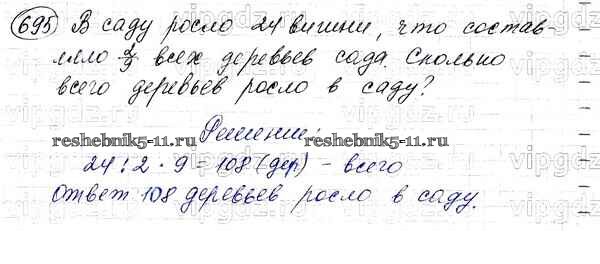 695 В саду росло 24 вишни, что состав-
ляло 2/9 всех деревьев сада. Сколько
всего деревьев росло в саду?
Решение:
reshebnik5-11.ru reshebnik5-11.ru
24 : 2 · 9 = 108 (дер) - всего
Ответ 108 деревьев росло в саду.